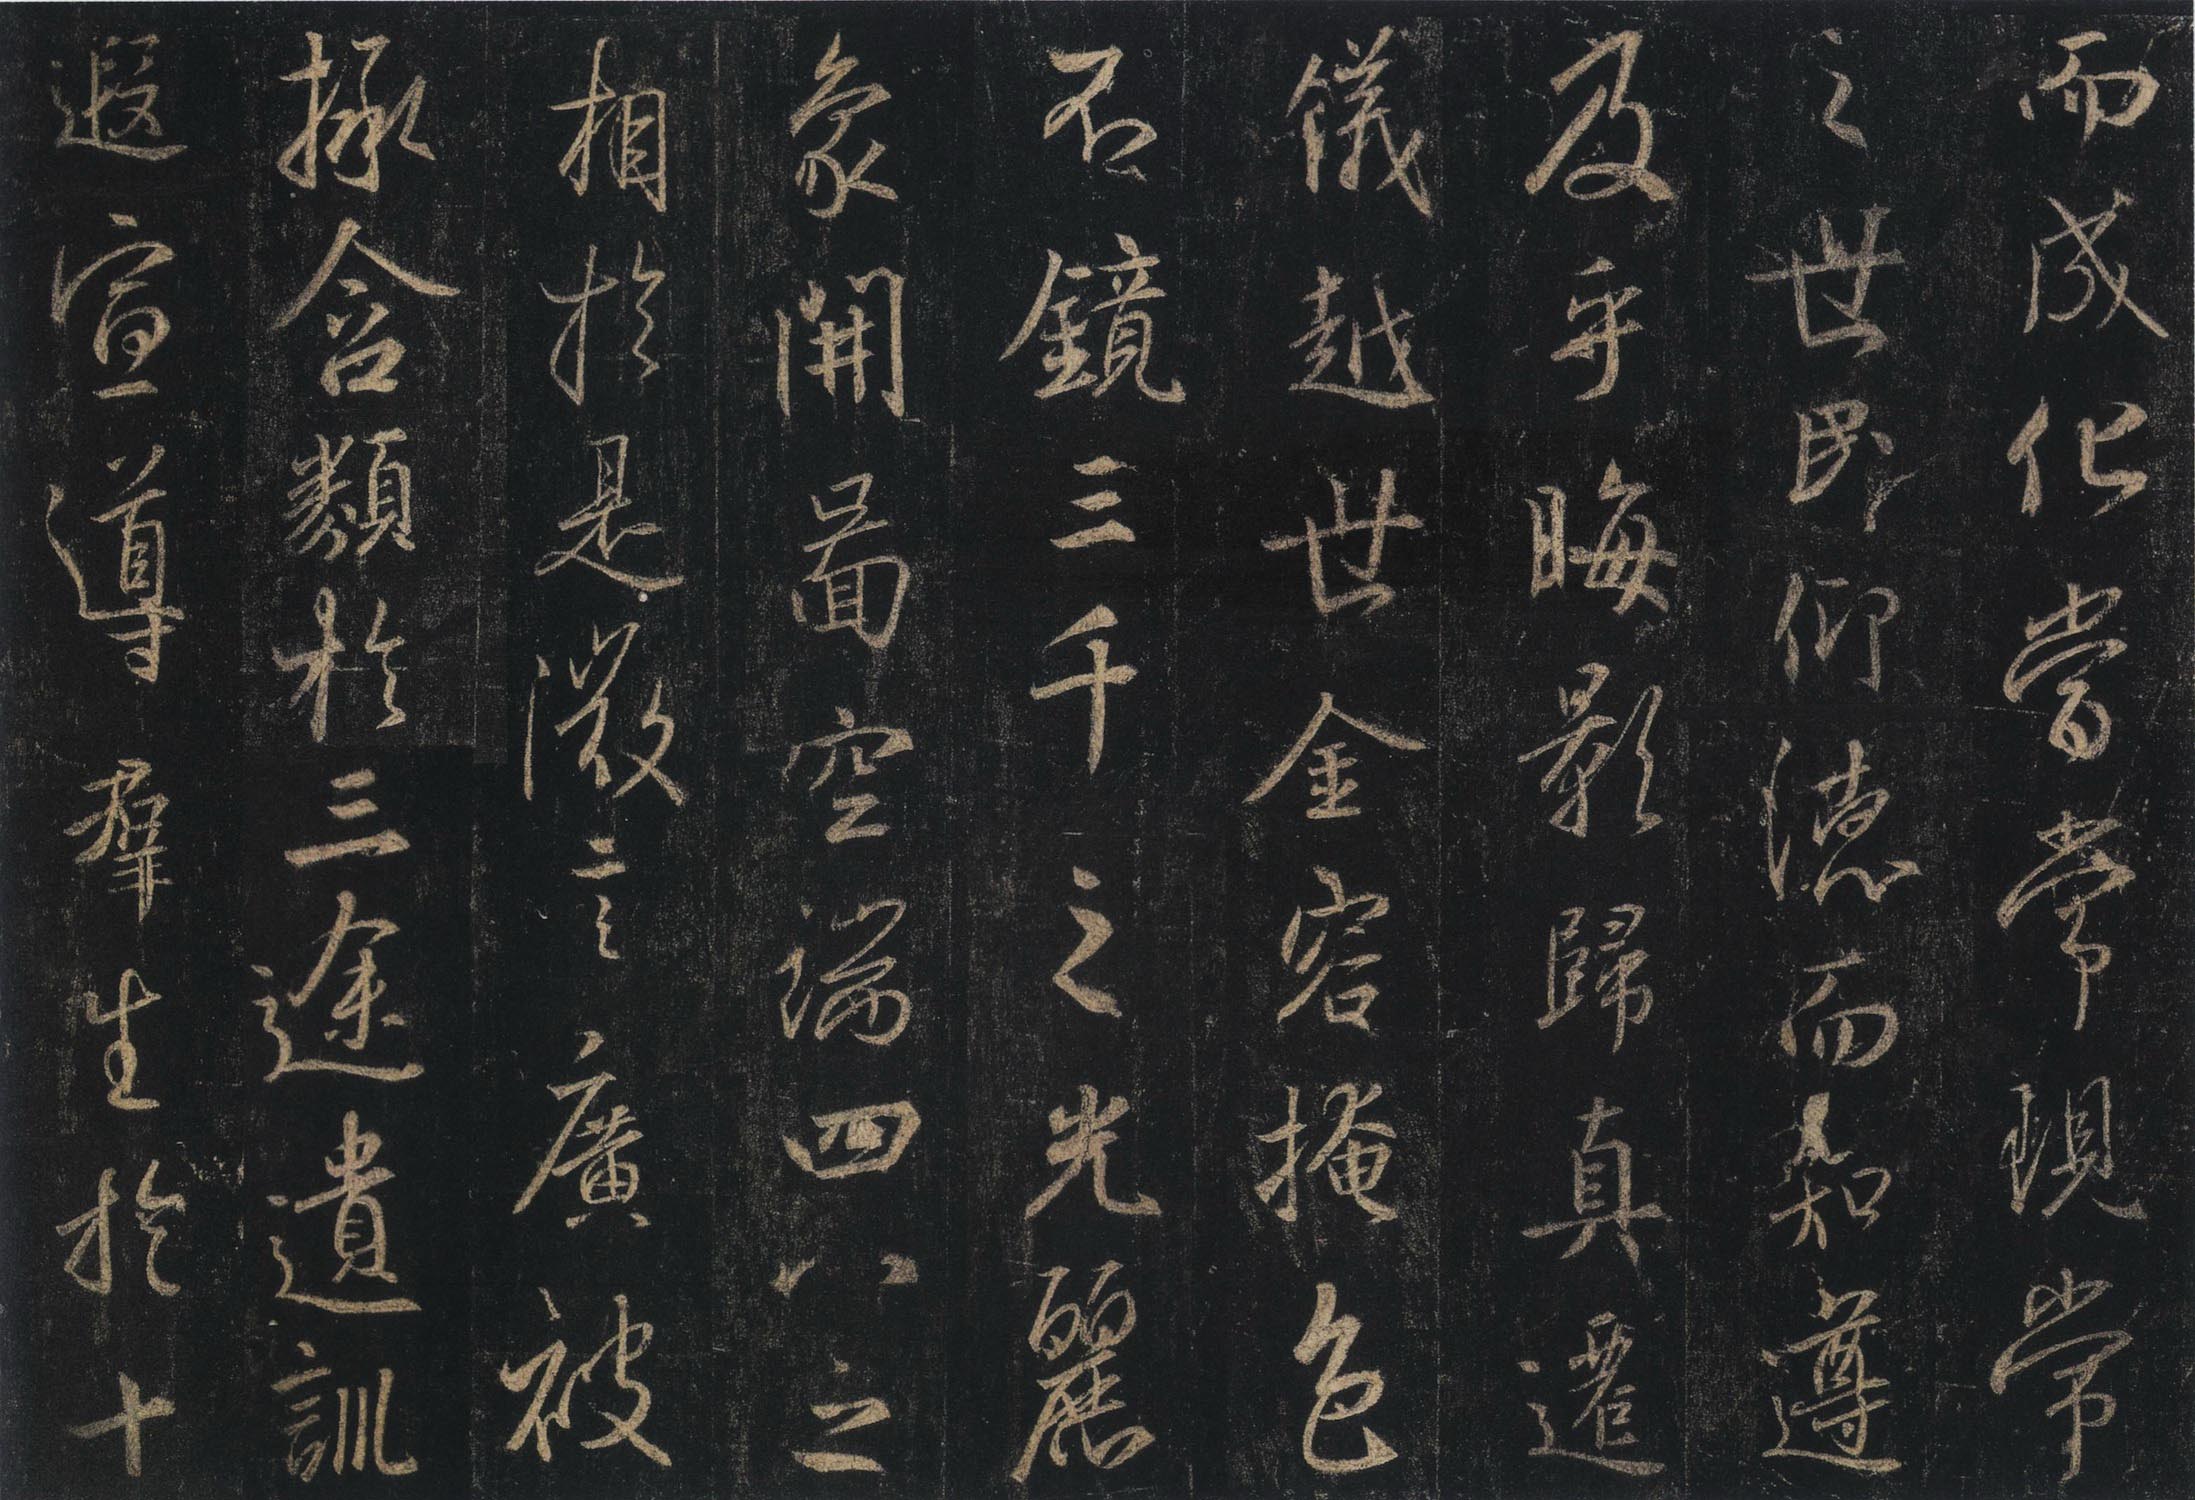 而成化當常現常
之世民仰德而知遵
及乎晦影歸真遷
儀越世金容掩色
不鏡三千之光麗
象開圖空端四八之
相於是微言廣被
拯含類於三途遺訓
遐宣導群生於十